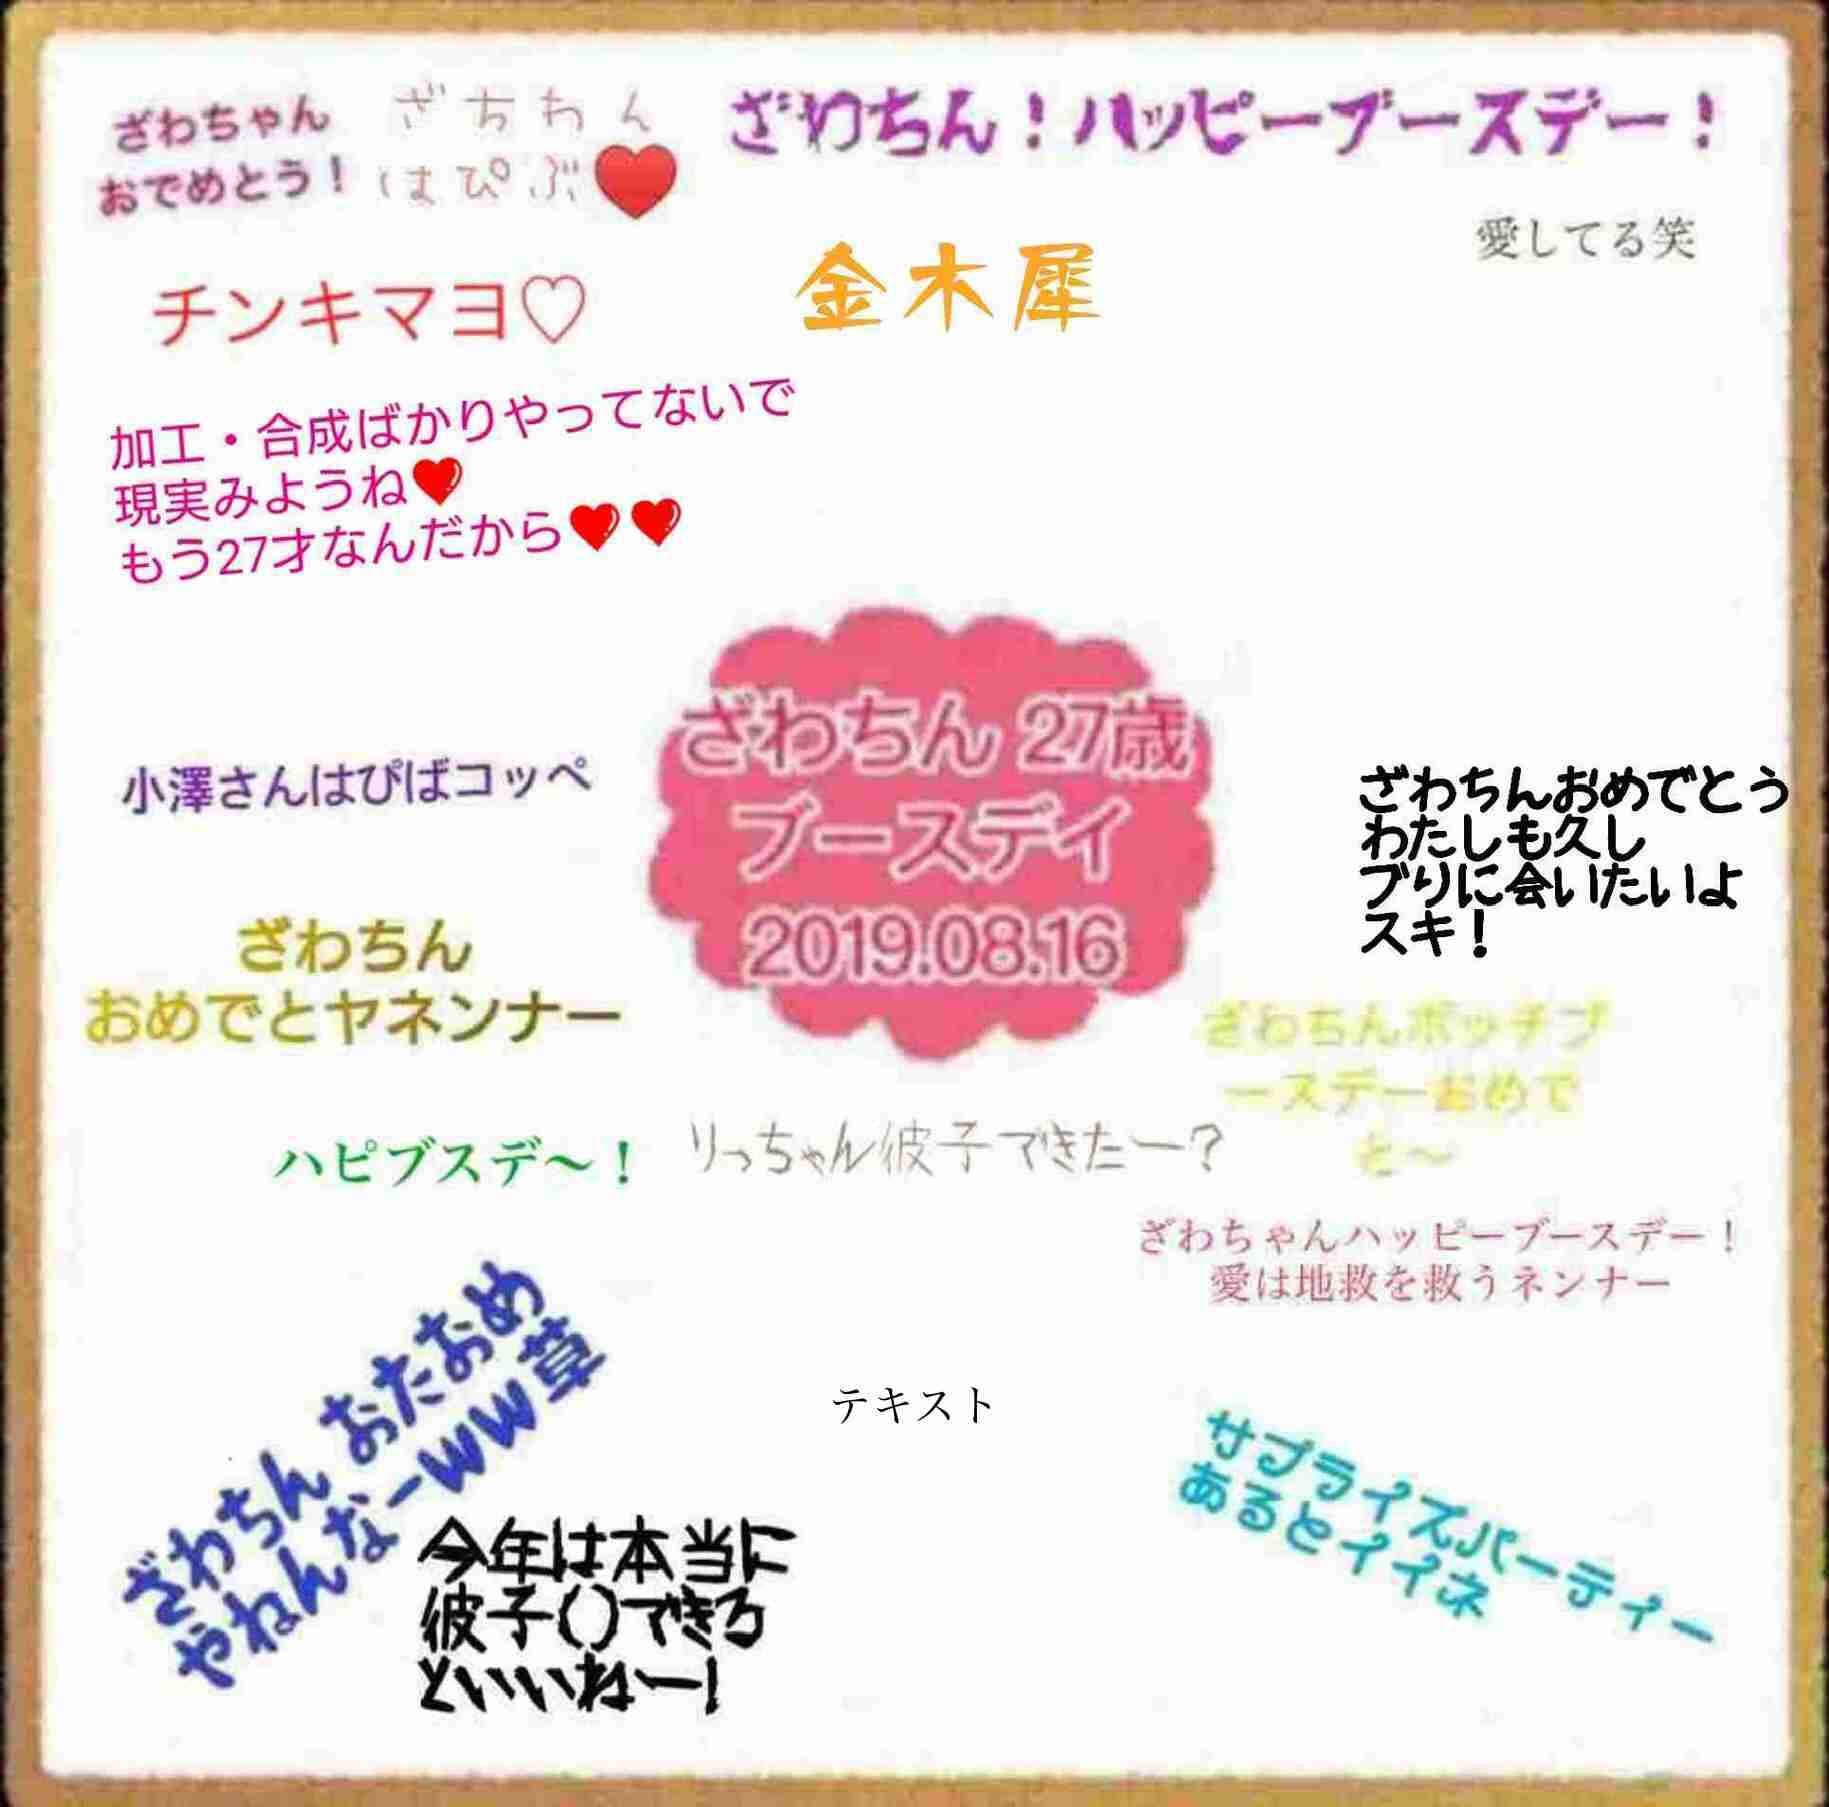 ざわちゃん
おでめとう!
ざちわん
はぴぶ❤
ざわちん!ハッピーブースデー!
愛してる笑
チンキマヨ♡
金木犀
加工・合成ばかりやってないで
現実みようね❤
もう27才なんだから❤❤
ざわちん 27歳
ブースデイ
2019.08.16
小澤さんはぴばコッペ
ざわちんおめでとう
わたしも久し
ブりに会いたいよ
スキ!
ざわちん
おめでとヤネンナー
ざわちんボッチブ
ースデーおめで
と〜
ハピブスデ〜!
りっちゃん彼子できたー?
ざわちゃんハッピーブースデー!
愛は地救を救うネンナー
ざわちん おたおめ
やねんなーWW草
テキスト
サプライズパーティー
あるとイイネ
今年は本当に
彼子()できろ
といいねー!